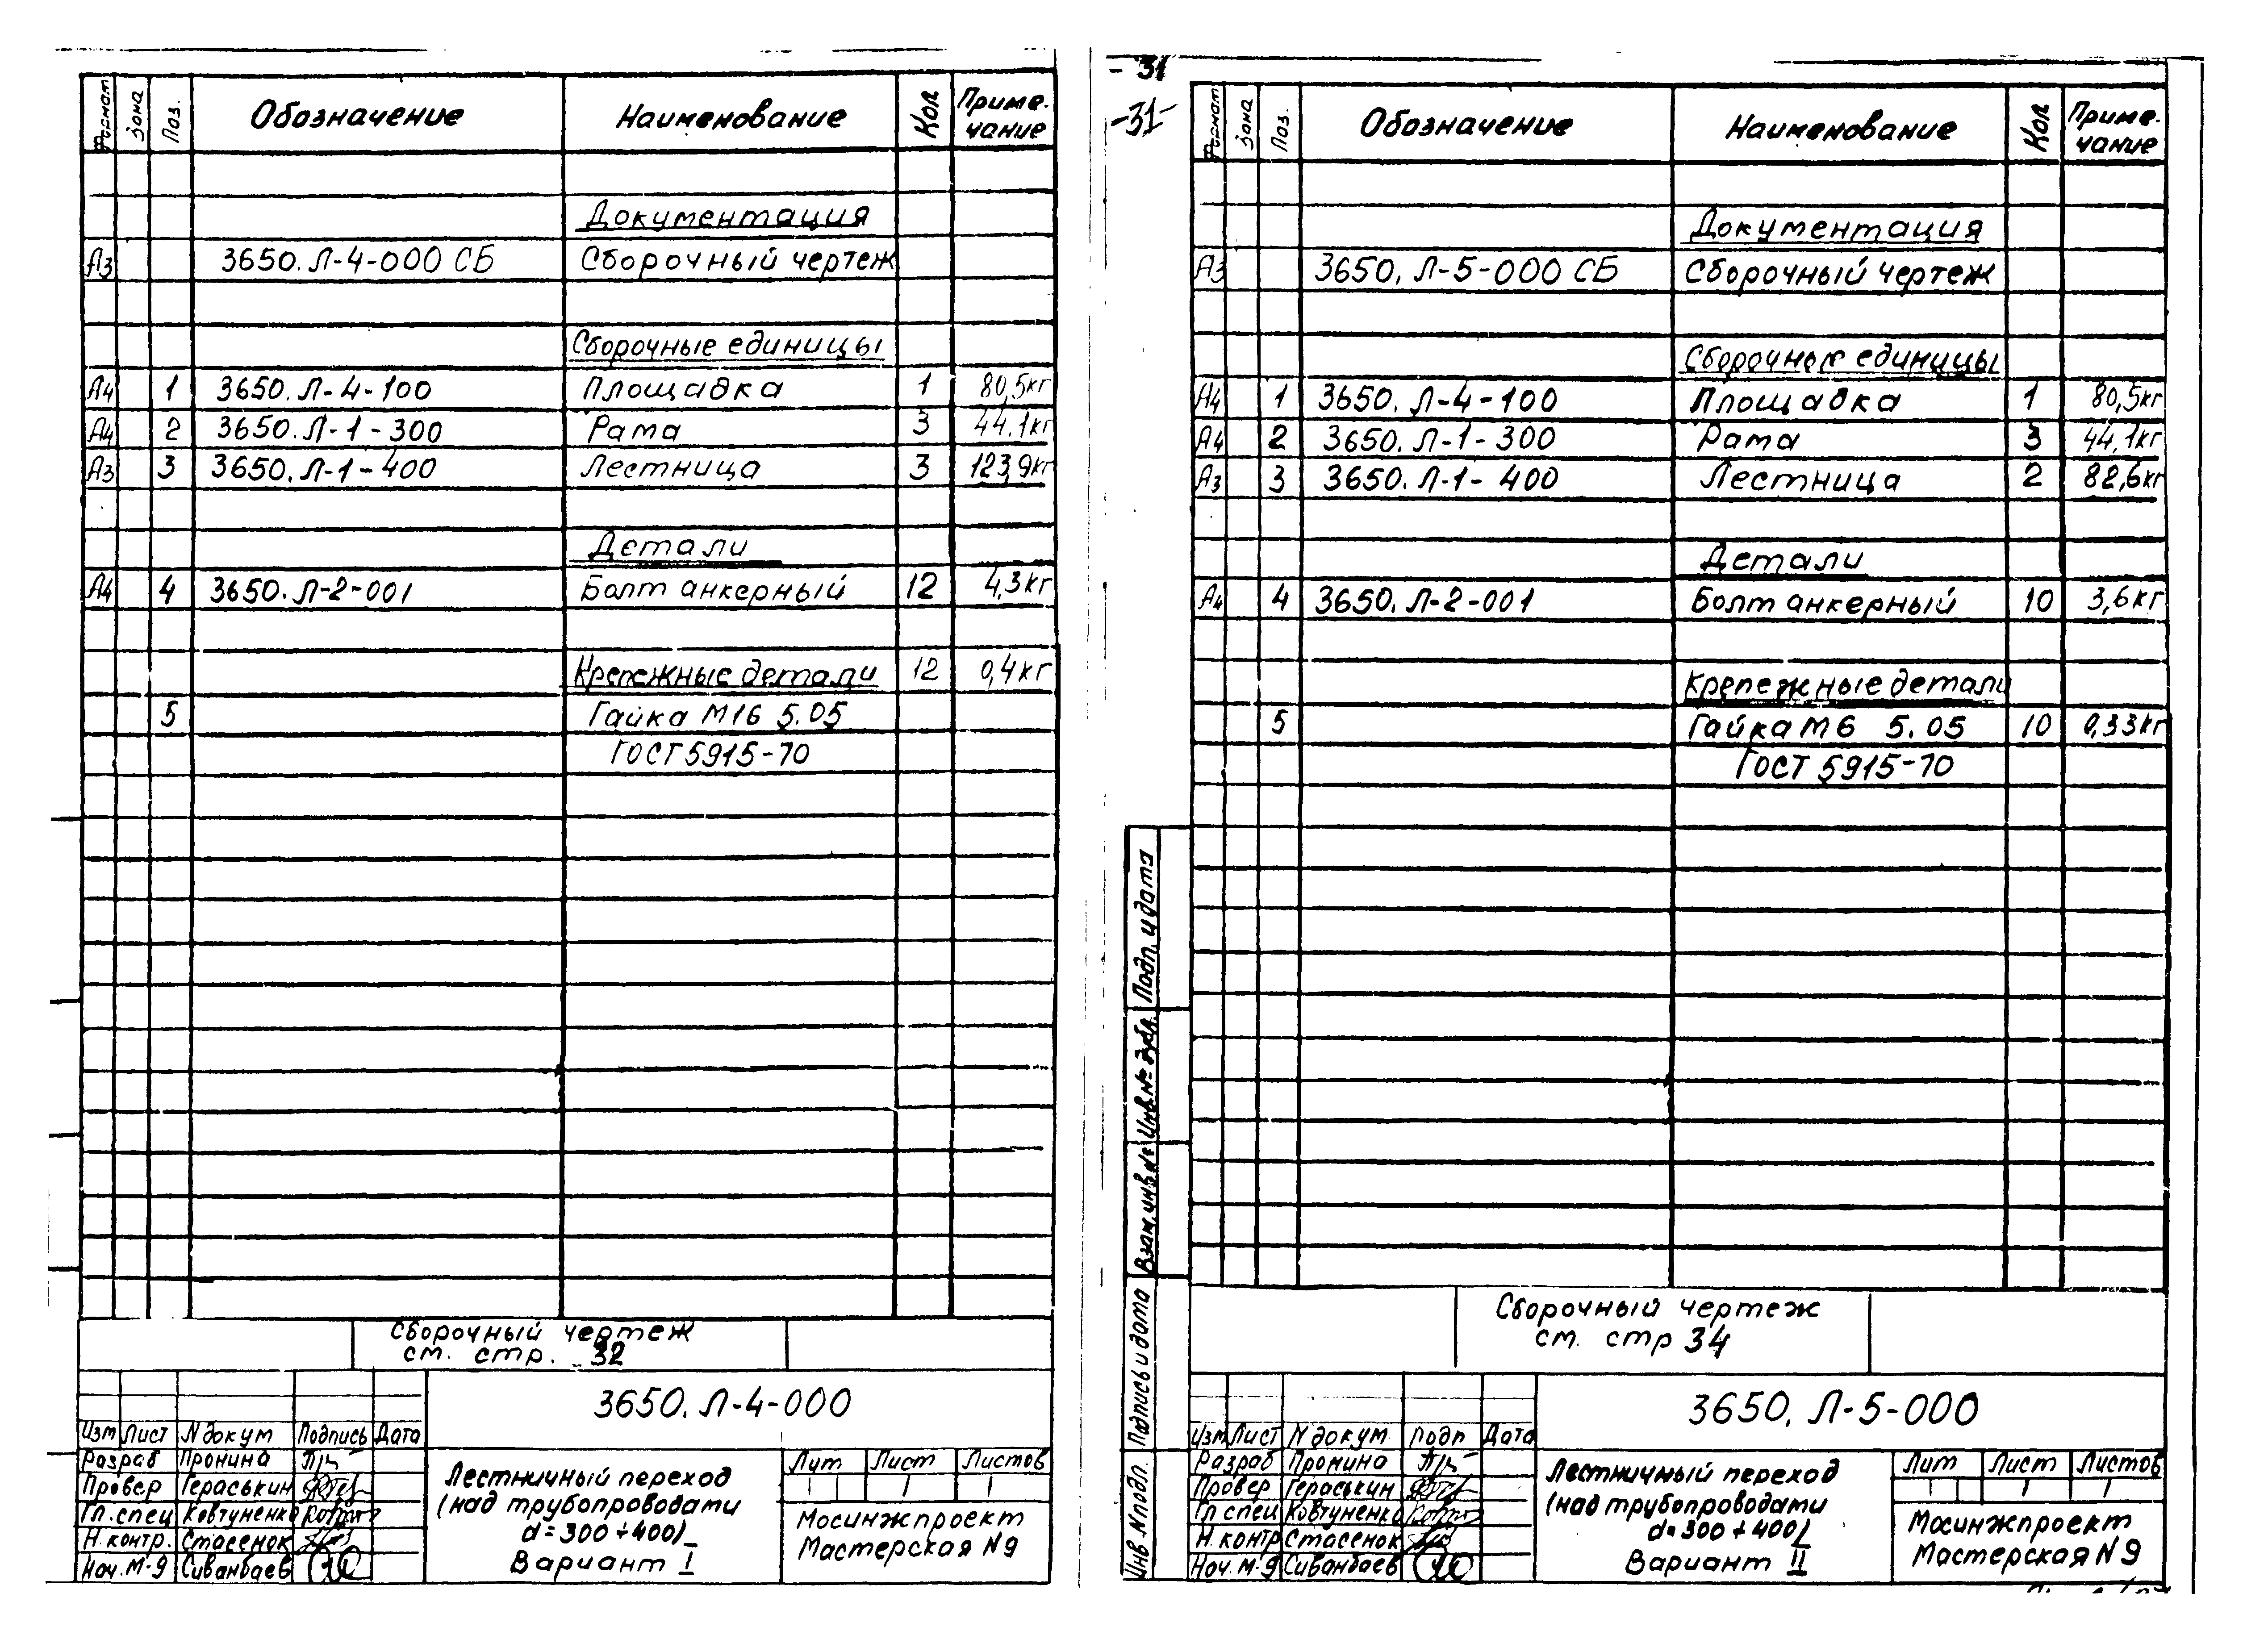 Формат Зона Поз. Обозначение Наименование Кол Приме-
чание
Документация
А3 3650.Л-4-000 СБ Сборочный чертеж
Сборочные единицы
А4 1 3650.Л-4-100 Площадка 1 80,5кг
А4 2 3650.Л-1-300 Рама 3 44.1кг
А3 3 3650.Л-1-400 Лестница 3 123,9кг
Детали
А4 4 3650.Л-2-001 Болт анкерный 12 4,3кг
Крепежные детали 12 0,4кг
5 Гайка М16 5.05
ГОСТ 5915-70
Сборочный чертеж
см. стр. 32
3650.Л-4-000
Изм Лист N докум Подпись Дата
Разраб Пронина
Провер Гераськин
Гл.спец Ковтуненко
Н.контр. Стасенок
Нач.М-9 Сиванбаев
Лестничный переход
(над трубопроводами
d=300÷400)
Вариант I
Лит Лист Листов
1 1
Мосинжпроект
Мастерская N9
- 31
-31-
Формат Зона Поз. Обозначение Наименование Кол Приме-
чание
Документация
А3 3650.Л-5-000 СБ Сборочный чертеж
Сборочных единицы
А4 1 3650.Л-4-100 Площадка 1 80,5кг
А4 2 3650.Л-1-300 Рама 3 44,1кг
А3 3 3650.Л-1-400 Лестница 2 82,6кг
Детали
А4 4 3650.Л-2-001 Болт анкерный 10 3,6кг
Крепежные детали
5 Гайка М6 5.05 10 0,33кг
ГОСТ 5915-70
Подп. и дата
Инв.№ дубл.
Взам.инв.№
Подпись и дата
Инв N подл.
Сборочный чертеж
см. стр 34
3650.Л-5-000
Изм Лист N докум Подп Дата
Разраб Пронина
Провер Гераськин
Гл спец Ковтуненко
Н.контр Стасенок
Нач.М-9 Сиванбаев
Лестничный переход
(над трубопроводами
d=300÷400)
Вариант II
Лит Лист Листов
1 1
Мосинжпроект
Мастерская N9